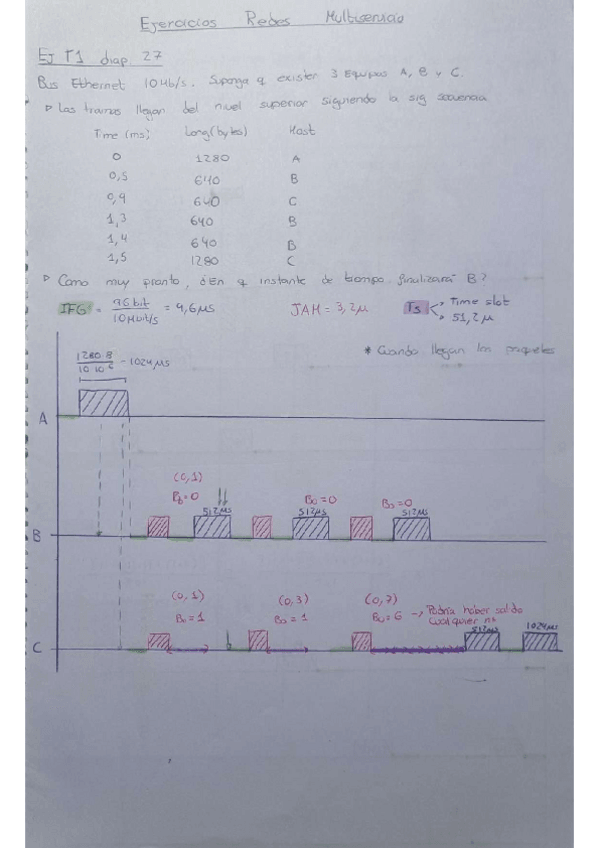 Ejercicios Redes Multiservicio
Ej T1 diap. 27
Bus Ethernet 10Mb/s. Suponga q existen 3 Equipos A, B y C.
Las tramas llegan del nivel superior siguiendo la sig secuencia
Time (ms) Long(bytes) Host
0 1280 A
0,5 640 B
0,9 640 C
1,3 640 B
1,4 640 B
1,5 1280 C
Como muy pronto, ¿En q instante de tiempo finalizará B?
IFG = 96 bit / 10Mbit/s = 9,6µs JAM = 3,2µ Ts → Time slot
→ 51,2 µ
* Cuando llegan los paquetes
1280·8 / 10·10⁶ - 1024µs
A
(0,1)
Bo=0 Bo=0 Bo=0
512µs 512µs 512µs
B
(0,1) (0,3) (0,7)
Bo=1 Bo=1 Bo=6 → Podría haber salido
cualquier nº
512µs 1024µs
C